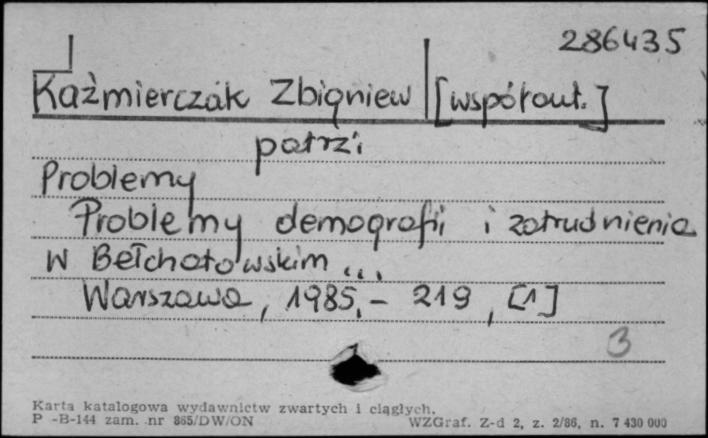 286435
Kaźmierczak Zbigniew [współaut.]
patrz:
Problemy
Problemy demografii i zatrudnienia
w Bełchatowskim...
Warszawa, 1985.- 219, [1]
3
Karta katalogowa wydawnictw zwartych i ciągłych.
P -B-144 zam. nr 865/DW/ON WZGraf. Z-d 2, z. 2/86, n. 7 430 000